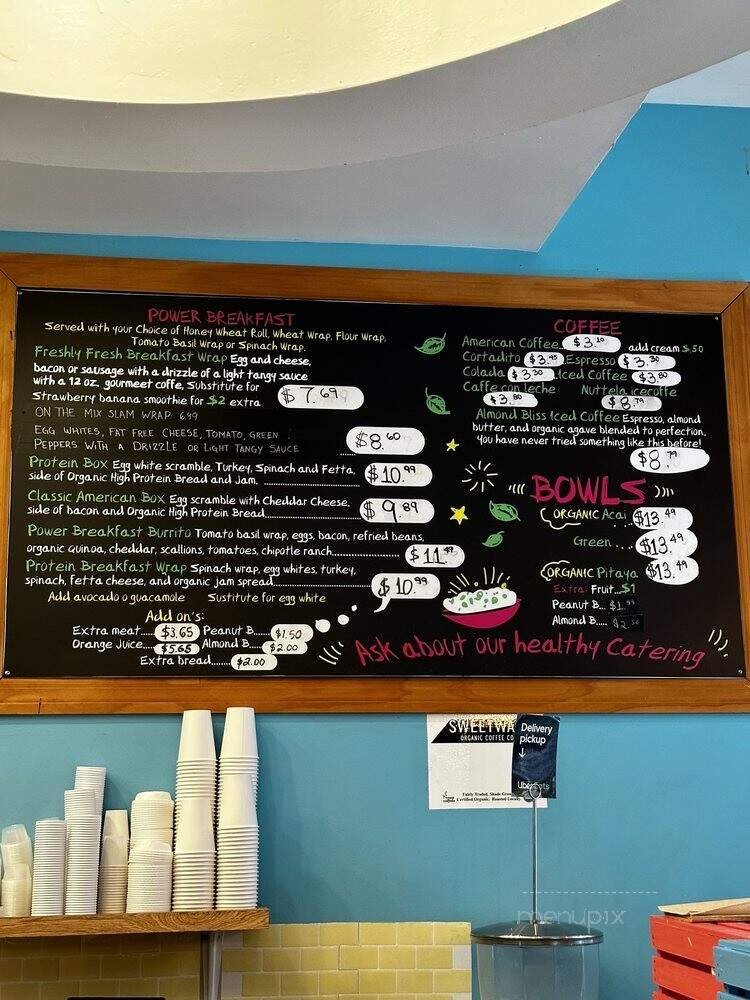 POWER BREAKFAST
Served with your Choice of Honey Wheat Roll, Wheat Wrap, Flour Wrap,
Tomato Basil Wrap or Spinach Wrap.
Freshly Fresh Breakfast Wrap Egg and cheese,
bacon or sausage with a drizzle of a light tangy sauce
with a 12 oz. gourmeet coffe, Substitute for
Strawberry banana smoothie for $2 extra $7.69
ON THE MIX SLAM WRAP 6.99
EGG WHITES, FAT FREE CHEESE, TOMATO, GREEN
PEPPERS WITH A DRIZZLE OR LIGHT TANGY SAUCE $8.60
Protein Box Egg white scramble, Turkey, Spinach and Fetta,
side of Organic High Protein Bread and Jam. $10.99
Classic American Box Egg scramble with Cheddar Cheese,
side of bacon and Organic High Protein Bread $9.89
Power Breakfast Burrito Tomato basil wrap, eggs, bacon, refried beans,
organic quinoa, cheddar, scallions, tomatoes, chipotle ranch
Protein Breakfast Wrap Spinach wrap, egg whites, turkey,
spinach, fetta cheese, and organic jam spread $10.99
Add avocado o guacamole Sustitute for egg white
Add on's:
Extra meat..... $3.65 Peanut B..... $1.50
Orange Juice..... $5.65 Almond B..... $2.00
Extra bread..... $2.00
COFFEE
American Coffee $3.10 add cream $.50
Cortadito $3.95 Espresso $3.30
Colada $3.30 Iced Coffee $3.80
Caffe con leche Nuttela icecoffe
$3.80 $8.79
Almond Bliss Iced Coffee Espresso, almond
butter, and organic agave blended to perfection.
you have never tried something like this before!
$8.79
BOWLS
ORGANIC Acai $13.49
Green ... $13.49
ORGANIC Pitaya $13.49
Extra: Fruit...$1
Peanut B... $1.99
Almond B....
Ask about our healthy Catering
SWEETWA
ORGANIC COFFEE CO
Fairly Traded, Shade Grown
Certified Organic, Roasted Locally
Delivery
pickup
↓
Uber Eats
menupix